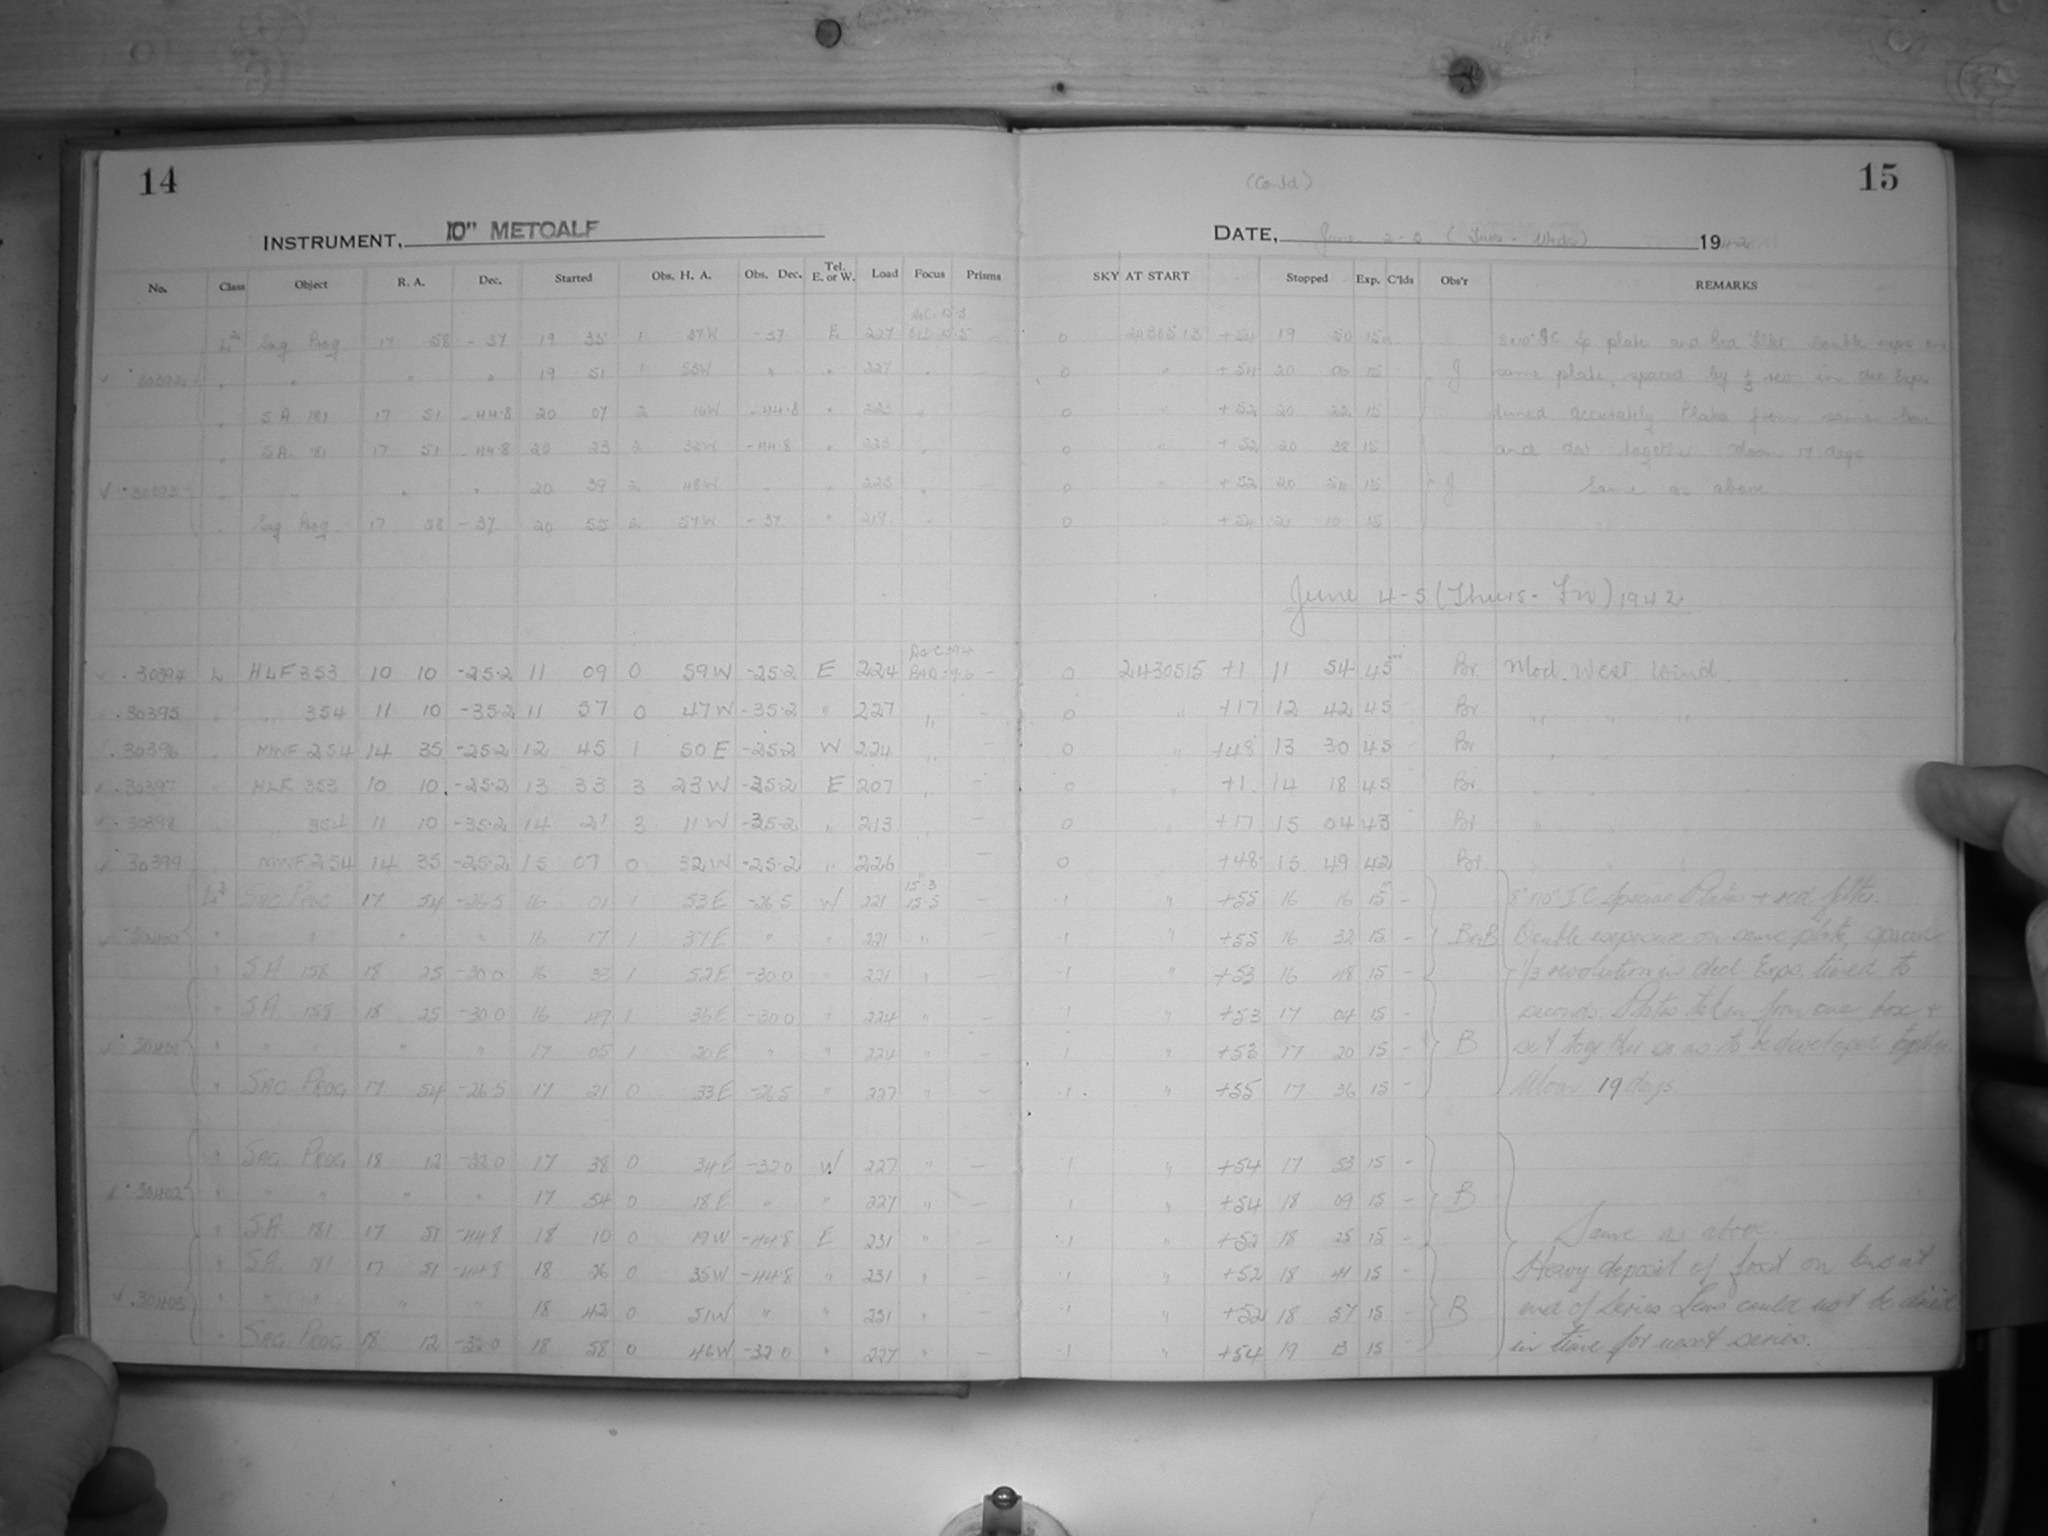 14
15
(Contd)
INSTRUMENT, 10" METCALF
DATE, June 2-3 (Tues-Weds) 1942
No. Class Object R. A. Dec. Started Obs. H. A. Obs. Dec. Tel. E. or W. Load Focus Prisms SKY AT START Stopped Exp. C'lds Obs'r REMARKS
Sag Prog 17 58 -37 19 35 1 37W -37 E 227 0 +54 19 50 15
" " " 19 51 1 53W " " 227 0 " +54 20 06 15 J same plate, spaced by 1/3 rev. in dec Exps
SA 181 17 51 -44.8 20 07 2 16W -44.8 " 223 0 " +52 20 22 15 timed accurately Plates from same box
SA. 181 17 51 -44.8 20 23 2 32W -44.8 " 223 0 " +52 20 38 15 and dev together. Moon 17 days
" " " 20 39 2 48W " " 223 0 " +52 20 54 15 J Same as above
Sag Prog 17 58 -37 20 55 2 57W -37 " 219 0 " +54 21 10 15
June 4-5 (Thurs-Fri) 1942
30394 L HLF 353 10 10 -25.2 11 09 0 59W -25.2 E 224 — 0 2430515 +1 11 54 45 Br Mod. West. Wind.
30395 " " 354 11 10 -35.2 11 57 0 47W -35.2 " 227 " — 0 " +17 12 42 45 Br " " "
30396 " MWF 254 14 35 -25.2 12 45 1 50E -25.2 W 224 " — 0 " +48 13 30 45 Br
30397 " HLF 353 10 10 -25.2 13 33 3 23W -25.2 E 207 " — 0 " +1 14 18 45 Br
30398 " " 354 11 10 -35.2 14 21 3 11W -35.2 " 213 " — 0 " +17 15 04 43 Br
30399 " MWF 254 14 35 -25.2 15 07 0 32W -25.2 " 226 — 0 +48 15 49 42 Br
L2 SAG PROG 17 54 -26.5 16 01 1 53E -26.5 W 221 15.3 15.5 — 1 " +55 16 16 15 - 8"x10" I C Special Plates + red filter.
30400 " " " " 16 17 1 37E " " 221 " — 1 " +55 16 32 15 - Double exposure on same plate, spaced
" SA 158 18 25 -30.0 16 33 1 52E -30.0 " 221 " — 1 " +53 16 48 15 - 1/3 revolution in decl. Exps. timed to
" SA 158 18 25 -30.0 16 47 1 36E -30.0 " 224 " — 1 " +53 17 04 15 - seconds. Plates taken from one box +
30401 " " " " 17 05 1 20E " " 224 " — 1 " +53 17 20 15 - B set together so as to be developed together.
" SAG PROG 17 54 -26.5 17 21 0 33E -26.5 " 227 " — 1 " +55 17 36 15 - Moon 19 days
" SAG PROG 18 12 -32.0 17 38 0 34E -32.0 W 227 " — 1 " +54 17 53 15 -
30402 " " " " 17 54 0 18E " " 227 " — 1 " +54 18 09 15 - B
" SA 181 17 51 -44.8 18 10 0 19W -44.8 E 231 " — 1 " +52 18 25 15 - Same as above.
" SA. 181 17 51 -44.8 18 26 0 35W -44.8 " 231 " — 1 " +52 18 41 15 - Heavy deposit of frost on lens at
30403 " " " " 18 42 0 51W " " 231 " — 1 " +52 18 57 15 - B end of series Lens could not be dried
" SAG. PROG 18 12 -32.0 18 58 0 46W -32.0 " 227 " — 1 " +54 19 13 15 - in time for next series.